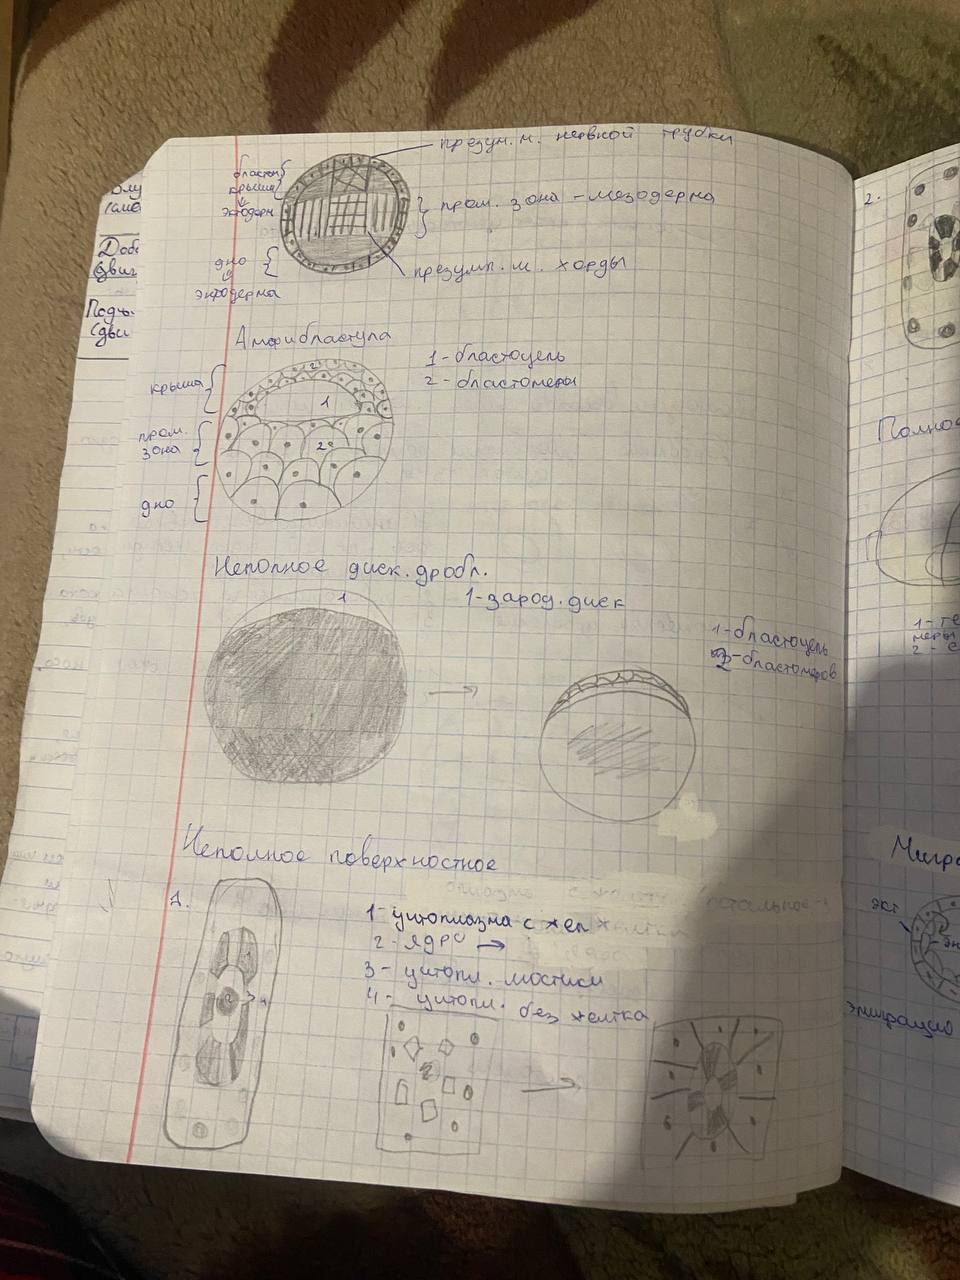 презум. м. нервной трубки
бластои
крыша
эктодерм
пром. зона - мезодерма
дно
презумп. м. хорды
энтодерма
Амфибластула
1 - бластоцель
2 - бластомеры
крыша
2
1
пром.
зона
2
дно
Неполное диск. дробл.
1
1 - зарод. диск
1 - бластоцель
2 - бластомеров
Неполное поверхностное
1.
1 - цитоплазма с жел
2 - ядро →
3 - цитопл. мостики
4 - цитопл. без желтка
2
4
2
Долу
Доб
(двиг
Подъ.
(дви
2.
Полно
1 - г
меры
2 - с
Мигра
экт
эн
эмиграцио